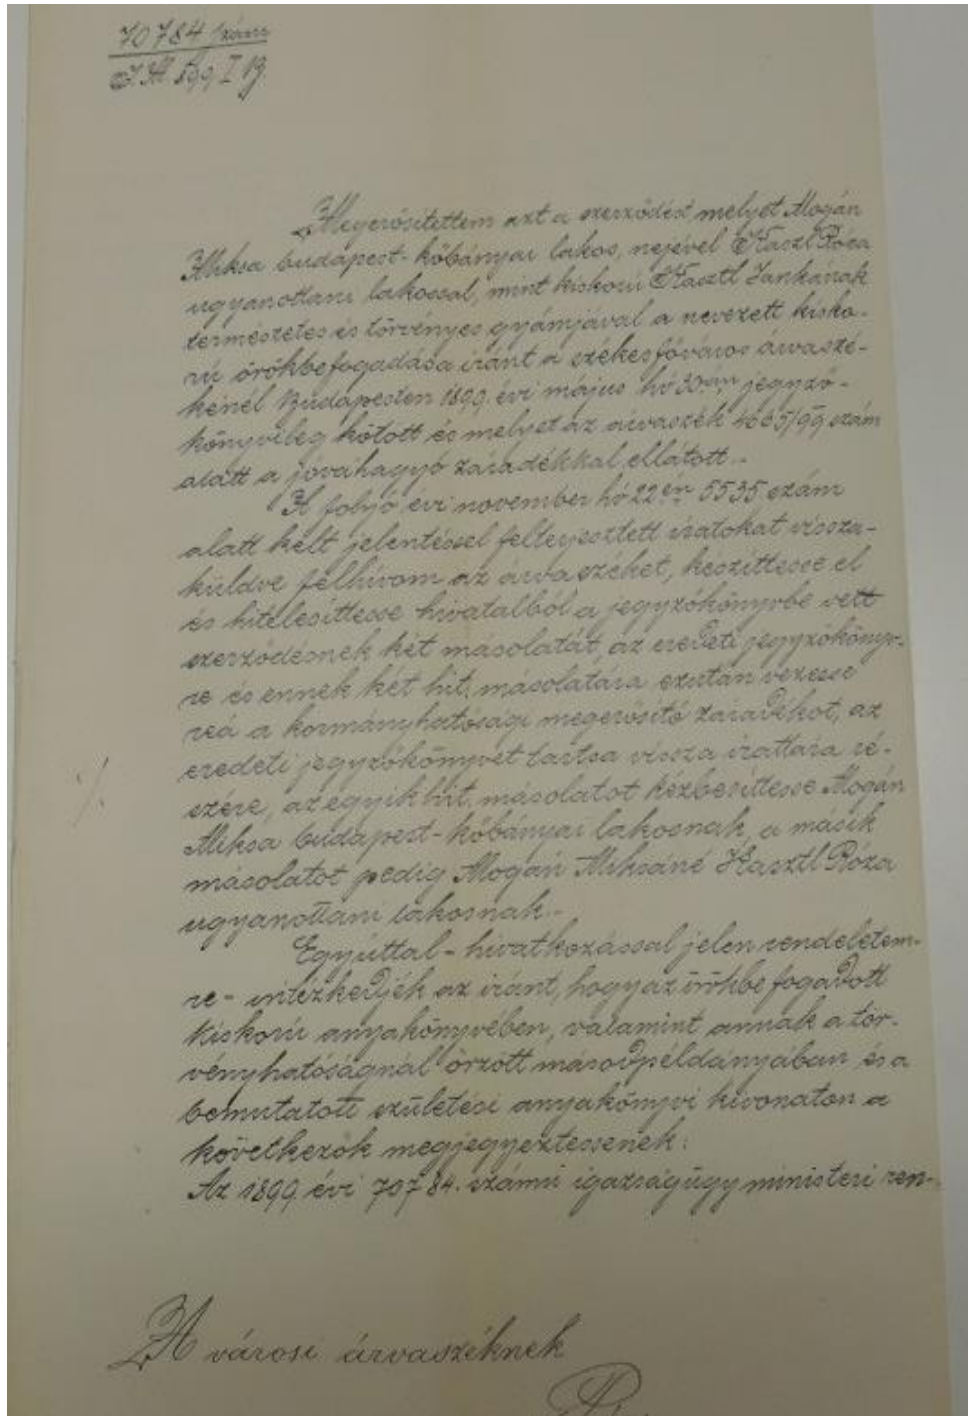 70784 szám
I.M. 899 I 19.
Megerősítettem azt a szerződést melyet Mogán
Miksa budapest-kőbányai lakos, nejével Hasztl Róza
ugyanottani lakossal, mint kiskorú Hasztl Jankának
természetes és törvényes gyámjával a nevezett kisko-
rú örökbefogadása iránt a székesfőváros árvaszé-
kénél Budapesten 1899. évi május hó 30-án jegyző-
könyvileg kötött és melyet az árvaszék 4665/99 szám
alatt a jóváhagyó záradékkal ellátott.-
A folyó évi november hó 22-én 5535 szám
alatt kelt jelentéssel felterjesztett iratokat vissza-
küldve felhívom az árvaszéket, készíttesse el
és hitelesíttesse hivatalból a jegyzőkönyvbe vett
szerződésnek két másolatát, az eredeti jegyzőköny-
re és ennek két hit. másolatára ezután vezesse
reá a kormányhatósági megerősítő záradékot, az
eredeti jegyzőkönyvet tartsa vissza irattára ré-
szére, az egyik hit. másolatot kézbesíttesse Mogán
Miksa budapest-kőbányai lakosnak, a másik
másolatot pedig Mogán Miksáné Hasztl Róza
ugyanottani lakosnak.-
Egyúttal - hivatkozással jelen rendeletem-
re - intézkedjék az iránt, hogy az örökbefogadott
kiskorú anyakönyvében, valamint annak a tör-
vényhatóságnál őrzött másodpéldányában és a
bemutatott születési anyakönyvi kivonaton a
következők megjegyeztessenek:
Az 1899. évi 70784. számú igazságügyministeri ren-
A városi árvaszéknek